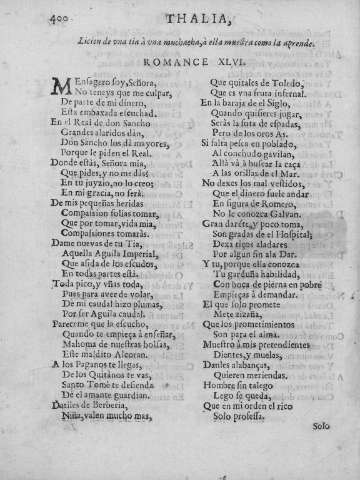 400 THALIA,
Licion de vna tia à vna muchacha, à ella muestra como la aprende.
ROMANCE XLVI.
MEnsagero soy, Señora,
No teneys que me culpar,
De parte de mi dinero,
Esta embaxada escuchad.
En el Real de don Sancho
Grandes alaridos dàn,
Don Sancho los dà mayores,
Porque le piden el Real.
Donde estàs, Señora mia,
Que pides, y no me dàs?
En tu juyzio, no lo creo;
En mi gracia, no serà.
De mis pequeñas heridas
Compassion solias tomar,
Que por tomar, vida mia,
Compassiones tomaràs.
Dame nuevas de tu Tia,
Aquella Aguila Imperial,
Que asida de los escudos,
En todas partes està.
Toda pico, y vñas toda,
Pues para aver de volar,
De mi caudal hizo plumas,
Por ser Aguila caudal.
Pareceme que la escucho,
Quando te empieça à enseñar,
Mahoma de nuestras bolsas,
Este maldito Alcoran.
A los Paganos te llegas,
De los Quitanos te vas,
Santo Tomè te defienda
De el amante guardian.
Datiles de Berberia,
Niña, valen mucho mas,
Que quitales de Toledo,
Que es vna fruta infernal.
En la baraja de el Siglo,
Quando quisieres jugar,
Seràs la sota de espadas,
Pero de los oros As.
Si falta pesca en poblado,
Al conchudo gavilan,
Allà và à buscar la caça
A las orillas de el Mar.
No dexes los mal vestidos,
Que el dinero suele andar
En figura de Romero,
No le conozca Galvan.
Gran darse, y poco toma,
Son gradas de el Hospital;
Dexa tiques aladares
Por algun sin ala Dar.
Y tu, porque ella conozca
Tu garduña habilidad,
Con boca de pierna en pobre
Empieças à demandar.
El que solo promete
Mete zizaña,
Que los prometimientos
Son para el alma.
Muestro à mis pretendientes
Dientes, y muelas,
Danles alabanças,
Quieren meriendas.
Hombre sin talego
Lego se queda,
Que en mi orden el rico
Solo professa.
Solo